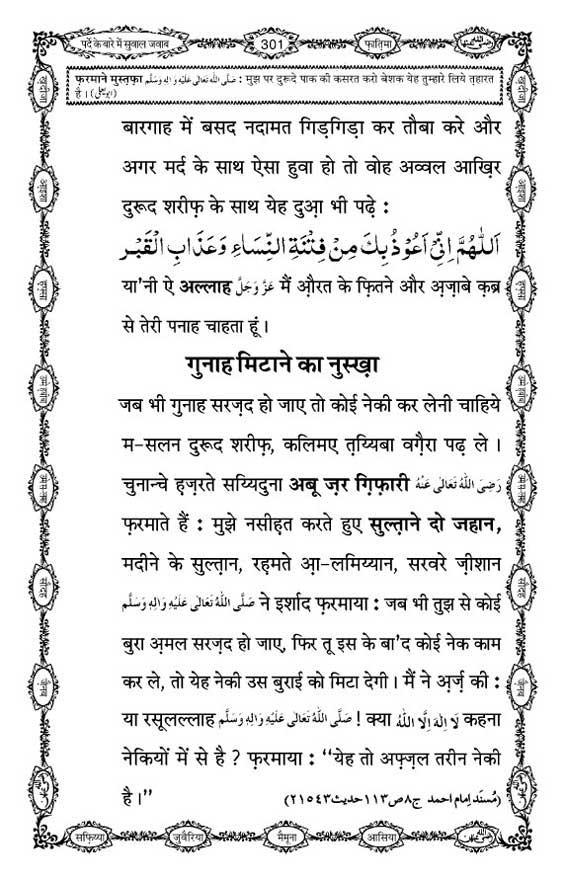 पर्दे के बारे में सुवाल जवाब
301
फ़ातिमा
फ़रमाने मुस्तफ़ा صَلَّى اللهُ تَعَالٰى عَلَيْهِ وَاٰلِهٖ وَسَلَّم : मुझ पर दुरूदे पाक की कसरत करो बेशक येह तुम्हारे लिये त़हारत
है । (ابو یعلی)
बारगाह में बसद नदामत गिड़गिड़ा कर तौबा करे और
अगर मर्द के साथ ऐसा हुवा हो तो वोह अव्वल आख़िर
दुरूद शरीफ़ के साथ येह दुआ़ भी पढ़े :
اَللّٰهُمَّ اِنِّیْ اَعُوْذُ بِكَ مِنْ فِتْنَةِ النِّسَاءِ وَعَذَابِ الْقَبْرِ
या'नी ऐ अल्लाह عَزَّوَجَلَّ मैं औ़रत के फ़ितने और अ़ज़ाबे क़ब्र
से तेरी पनाह चाहता हूं ।
गुनाह मिटाने का नुस्ख़ा
जब भी गुनाह सरज़द हो जाए तो कोई नेकी कर लेनी चाहिये
म-सलन दुरूद शरीफ़, कलिमए त़य्यिबा वग़ैरा पढ़ ले ।
चुनान्चे ह़ज़रते सय्यिदुना अबू ज़र ग़िफ़ारी رَضِیَ اللهُ تَعَالٰی عَنْهُ
फ़रमाते हैं : मुझे नसीह़त करते हुए सुल्त़ाने दो जहान,
मदीने के सुल्त़ान, रह़मते आ़-लमिय्यान, सरवरे ज़ीशान
صَلَّى اللهُ تَعَالٰى عَلَيْهِ وَاٰلِهٖ وَسَلَّم ने इर्शाद फ़रमाया : जब भी तुझ से कोई
बुरा अ़मल सरज़द हो जाए, फिर तू इस के बा'द कोई नेक काम
कर ले, तो येह नेकी उस बुराई को मिटा देगी । मैं ने अ़र्ज़ की :
या रसूलल्लाह صَلَّى اللهُ تَعَالٰى عَلَيْهِ وَاٰلِهٖ وَسَلَّم ! क्या لَا اِلٰهَ اِلَّا اللهُ कहना
नेकियों में से है ? फ़रमाया : “येह तो अफ़्ज़ल तरीन नेकी
है ।” (مُسنَد اِمام احمد ج٨ص١١٣حديث٢١٥٤٣)
सफ़िय्या
जुवैरिया
मैमूना
आसिया